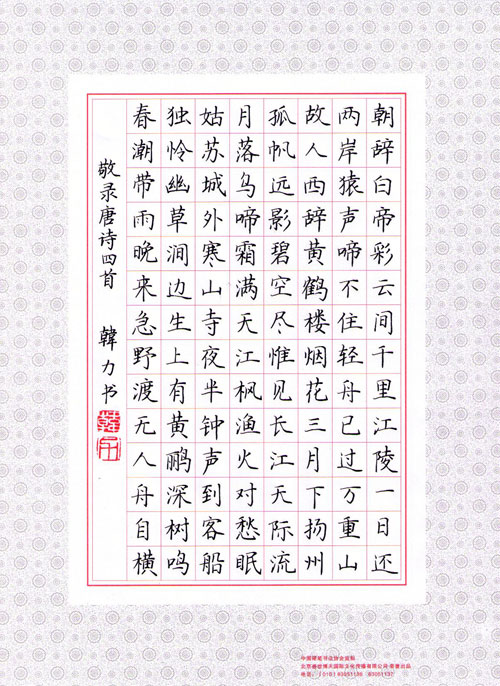 朝辞白帝彩云间千里江陵一日还
两岸猿声啼不住轻舟已过万重山
故人西辞黄鹤楼烟花三月下扬州
孤帆远影碧空尽惟见长江天际流
月落乌啼霜满天江枫渔火对愁眠
姑苏城外寒山寺夜半钟声到客船
独怜幽草涧边生上有黄鹂深树鸣
春潮带雨晚来急野渡无人舟自横
敬录唐诗四首 韓力书
中国硬笔书法协会监制
国际文化传播有限公司
电话:(010)